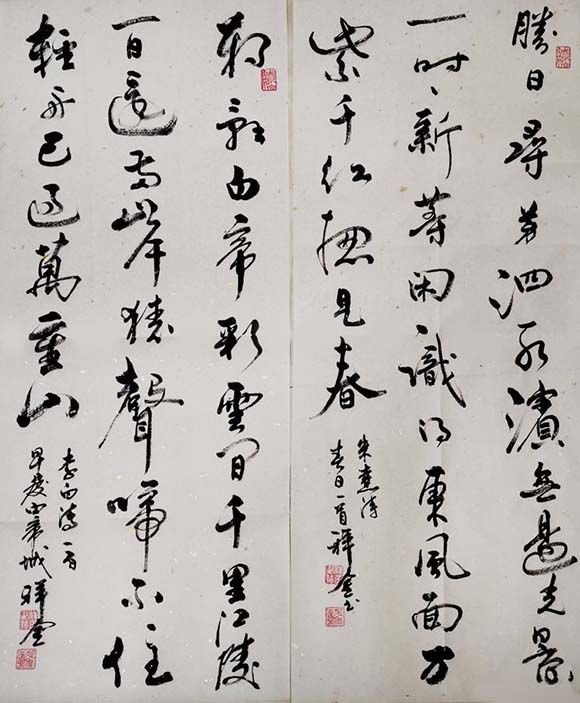 勝日尋芳泗水濱無邊光景
一时新等閑識得東風面万
紫千紅總見春
朱熹詩
春日一首祥金书
朝辭白帝彩雲間千里江陵
一日還兩岸猿聲啼不住
輕舟已過萬重山
李白詩一首
早發白帝城祥金